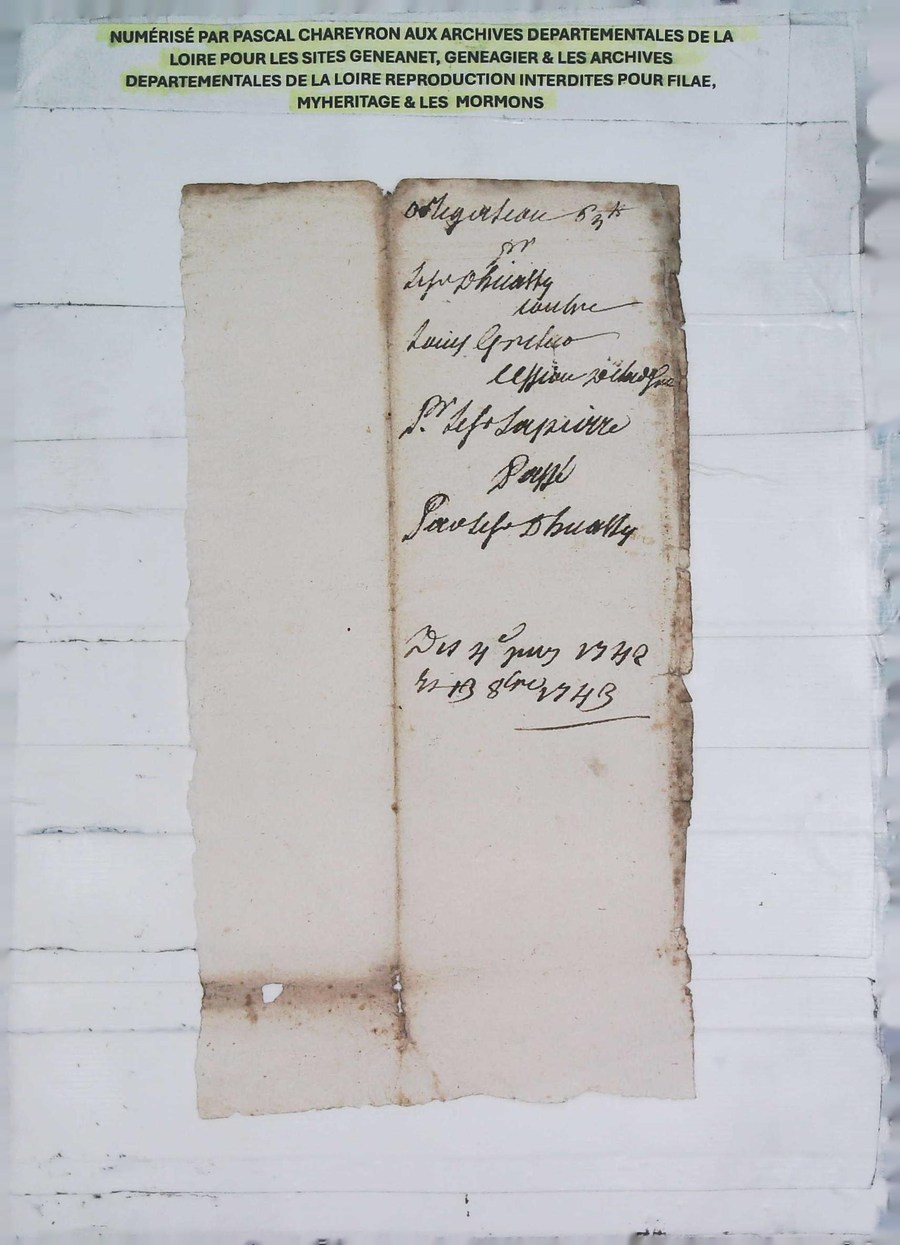 NUMÉRISÉ PAR PASCAL CHAREYRON AUX ARCHIVES DEPARTEMENTALES DE LA
LOIRE POUR LES SITES GENEANET, GENEAGIER & LES ARCHIVES
DEPARTEMENTALES DE LA LOIRE REPRODUCTION INTERDITES POUR FILAE,
MYHERITAGE & LES MORMONS
obligation
pr
contre
Louis
Cession
Pr Lapierre
Passé
Par
Des 4e juin 1742
Et 13 8bre 1743